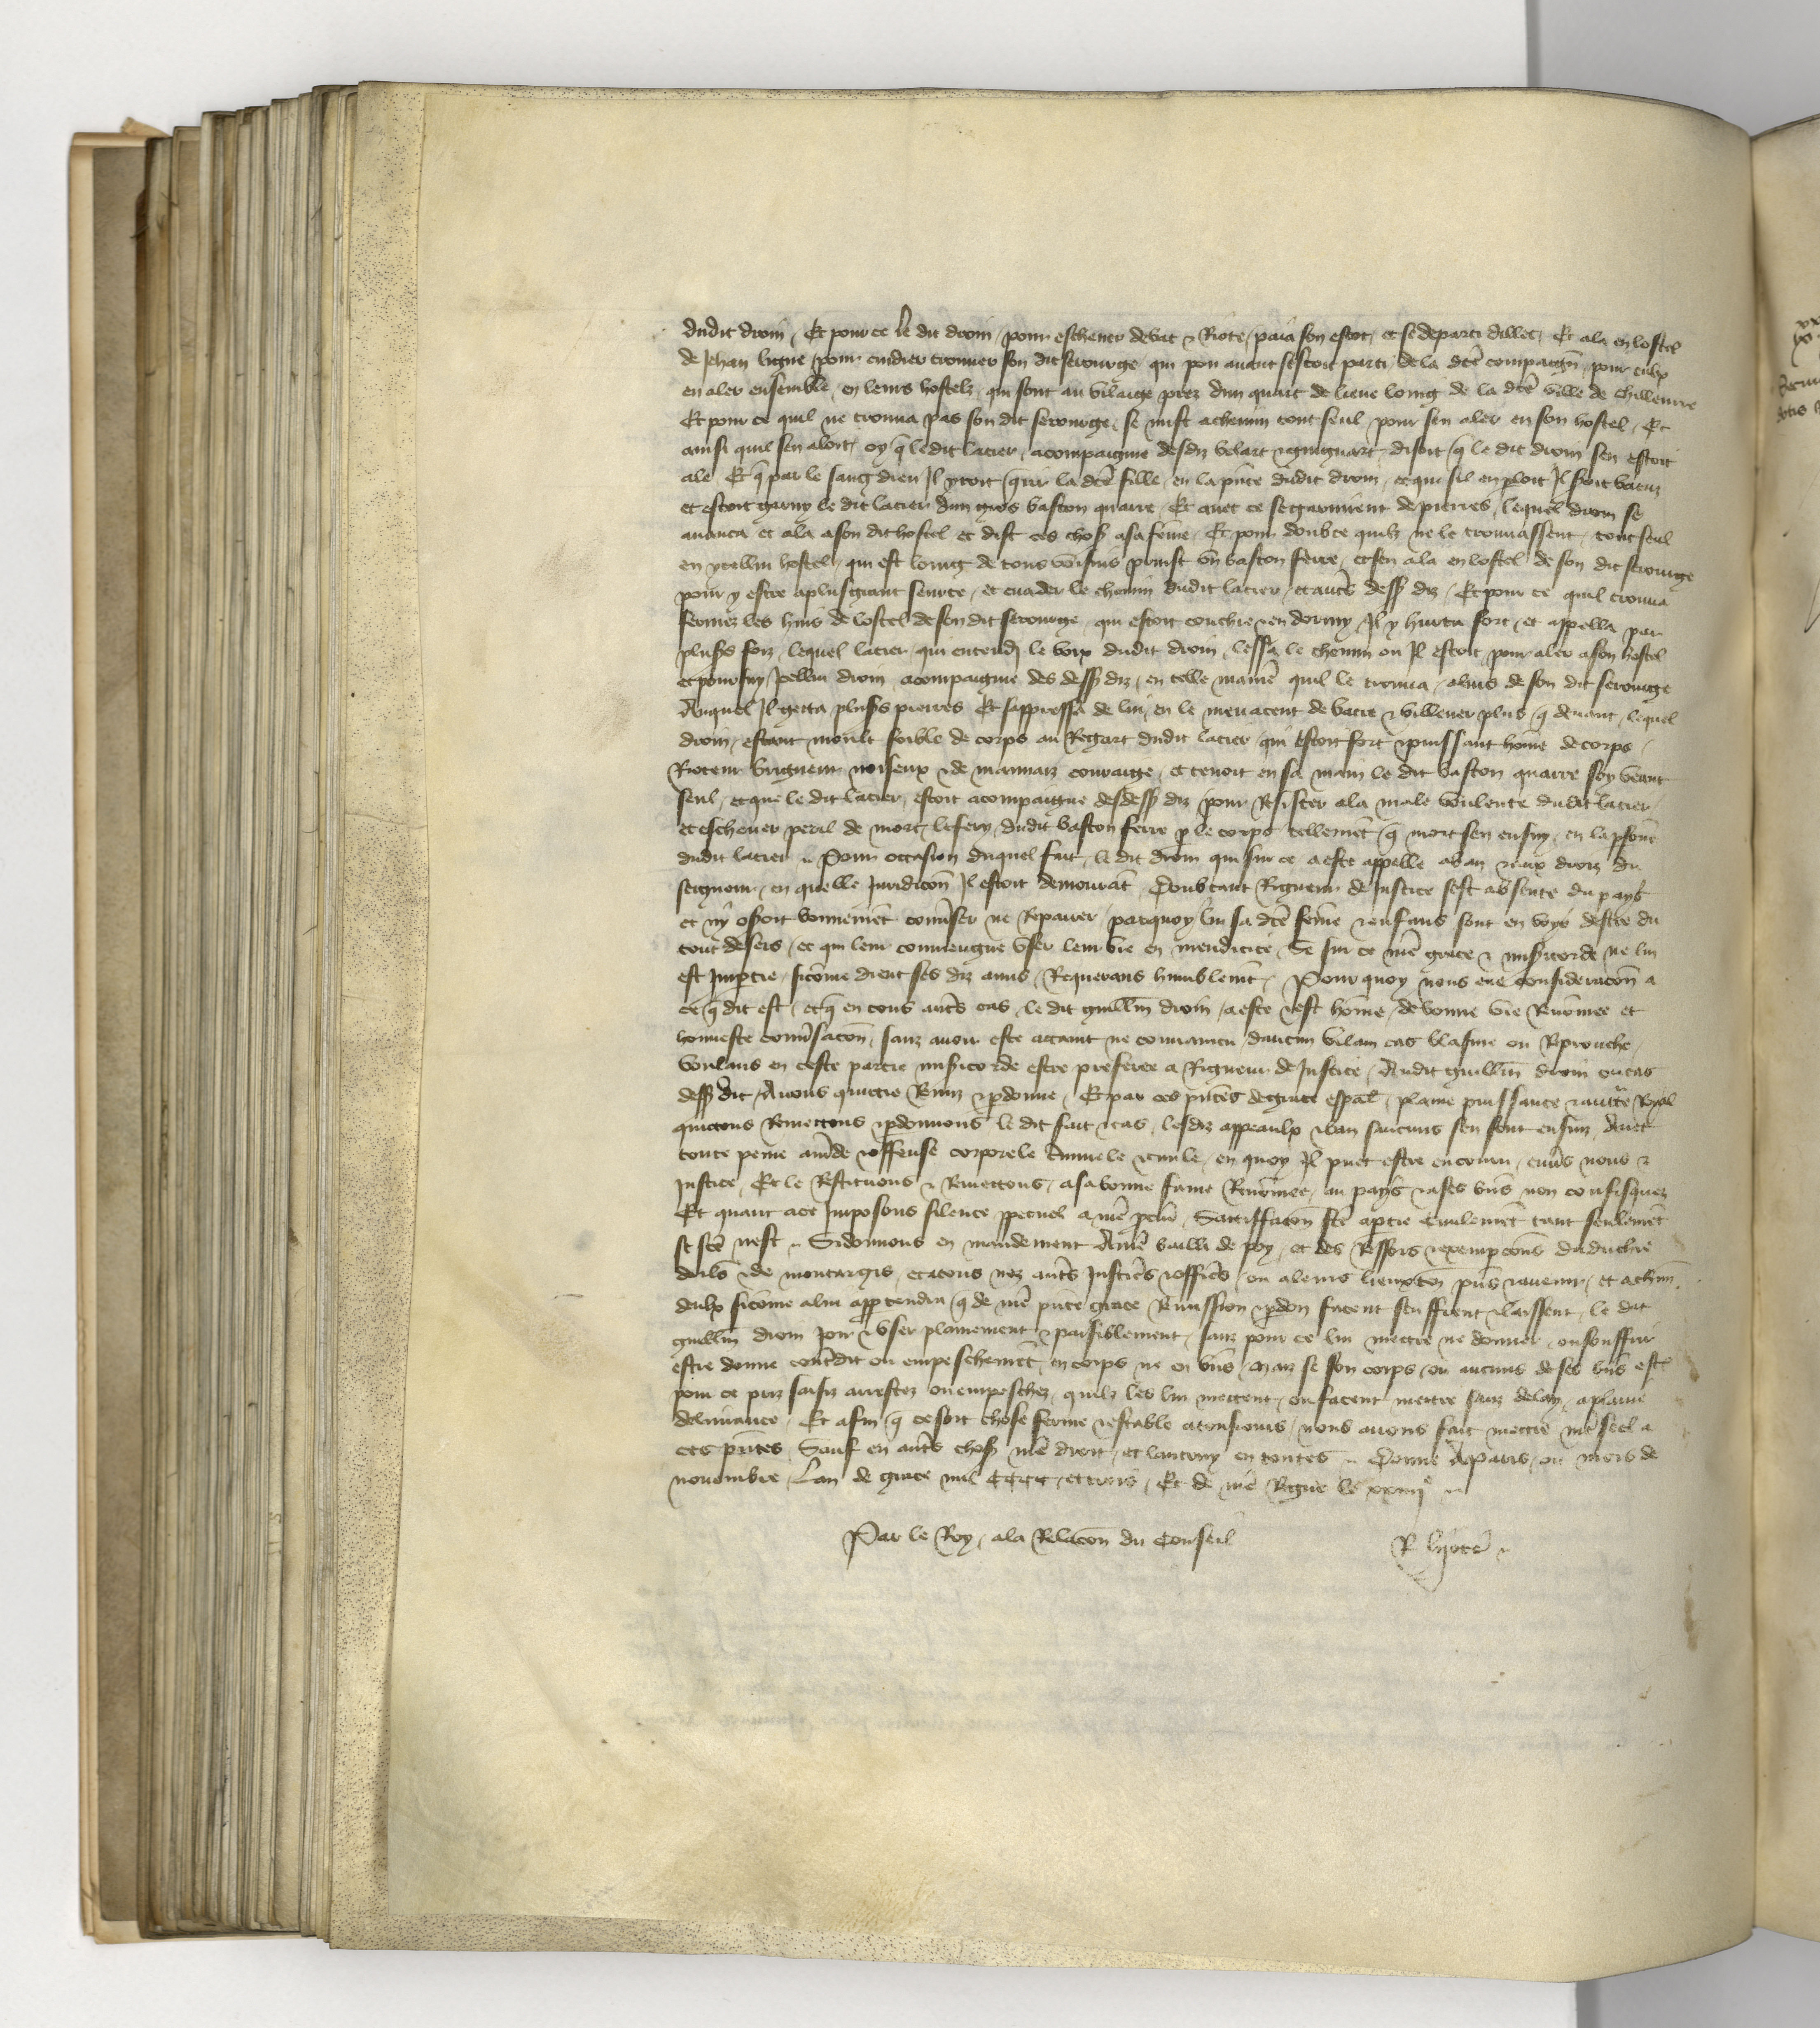 dudit droin / Et pour ce le dit droin / pour eschever debat & Riote / paia son escot / et se departi dillec / Et ala en lostel
de Jehan bigne / pour cuidier trouver son dit serourge qui pou avant sestoit parti de la dcē compaign̄ / pour eulx
en aler ensemble / en leurs hostelz / qui sont au vilaige prez dun quart de lieue loing de la dcē ville de chilleurre
Et pour ce quil ne trouva pas son dit serourge / se mist achemin tout seul / pour sen aler en son hostel / Et
ainsi quil sen aloit / oy q̄ ledit latier / acompaignie desdiz velart & guignart / disoit q̄ le dit droin sen estoit
ale / Et q̄ par le sang dieu Jl yroit querir la dcē fille / en la pn̄ce dudit droin / et que sil en ploit Jl seroit batuz
et estoit garny le dit latier dun gros baston quarre / Et avec ce se garnirent de pierres / lequel droin se
avanca et ala a son dit hostel et dist ces chos̄ a sa fēme / Et pour doubte quilz ne le trouvassent / tout seul
en ycellui hostel / qui est loing de tous voisins prinst un baston ferre / et sen ala en lostel de son dit serourge
pour y estre a plus grant seurte / et evader le chemin dudit latier / et autr̄s dess̄ diz / Et pour ce quil trouva
fermez les huis de lostel de son dit serourge / qui estoit couchie & en dormy / Jl y hurta fort / et appella par
plus̄s foiz / lequel latier / qui entendi le voix dudit droin / lessa le chemin ou Jl estoit / pour aler a son hostel
et poursuy / Jcellui droin acompaignie des dess̄ diz / en telle manie᷑ quil le trouva / a luis de son dit serourge
Auquel Jl getta plus̄s pierres Et sappressa de lui / en le menacent de batre & villener plus q̄ devant / lequel
droin / estant moult foible de corps au Regart dudit latier qui estoit fort & puissant hōme de corps /
Rioteur brigueur noiseux & de mauvaiz couraige / et tenoit en sa main le dit baston quarre soy veant
seul / et que le dit latier / estoit acompaigne desdess̄ diz / pour Resister a la male voulente dudit latier /
et eschever peril de mort / le fery / dudit baston ferre p̱ le corps tellemēt q̄ mort sen ensuy / en la p̱sōne
dudit latier .. Pour occasion duquel fait / le dit droin qui sur ce a este appelle a ban & aux droiz du
seigneur / en quelle Juridicōn Jl estoit demourāt / Doubtant Rigueur de Justice sest absente du pays
et ny oseroit bonnemēt convs̄er ne Repairer / par quoy lui sa dcē fēme & enfans sont en voye destre du
tout desers / et qui leur conviengne user leur vie en mendicite / Se sur ce nr̄e grace & misericorde ne lui
est Jmp̱tie / sicōme dient ses diz amis / Requerans humblemt̄ / Pour quoy nous eue consideracōn a
ce q̄ dit est / et q̄ en tous autr̄s cas / le dit guillm̄ droin / a este & est hōme / de bonne vie Renōmee et
honneste convs̄acōn / sanz avoir este attaint ne convaincu / daucun vilain cas blasme ou Reprouche /
Voulans en ceste partie misericorde estre preferee a Rigueur de Justice / Audit guillm̄ droin ou cas
dess̄ dit / Avons quictie Remiz & p̱donne / Et par ces pn̄tes de grace esp̄al / plaine puissance & auctte̅ Royal
quictons Remettons & p̱donnons le dit fait & cas / lesdiz appeaulx & ban saucuns sen sont ensuiz / Avec
toute peine amēde & offense corporele criminele & civile / en quoy Jl puet estre encouru / envs̄ nous &
justice / Et le Restituons & Remettons / a sa bonne fame Renōmee / au pays & a ses bn̄s non confisquez
Et quant a ce Jmposons silence p̱petuel a nr̄e p̱cur̄ / Satisffacōn fc̄e a p̱tie Civilemēt tant seulemēt
se fc̄e nest .. Si donnons en mandement A nr̄e bailli de poy / et des Ressors & exempcōns du duchie
dorl̄s & de montargis / et a tous noz autr̄s Justicrs̄ & officrs̄ / ou a leurs lieuxten̄ pn̄s & avenir / et a chūn
deulx sicōme a lui app̱tendra / q̄ de nr̄e pn̄te grace Remission & p̱don facent seuffrent & laissent le dit
guillm̄ droin Joir & user plainement & paisiblement / sanz pour ce lui mettre ne donner / ou souffrir
estre donne contr̄dit ou empeschemēt / en corps ne en bn̄s / Maiz se son corps / ou aucuns de ses bn̄s est
pour ce priz saisiz arrestez ou empeschez / quilz les lui mettent / ou facent mettre sanz delay / a plaine
delivrance / Et afin q̄ ce soit chose ferme & estable a tousiours / nous avons fait mettre nr̄e seel a
ces pn̄tes / Sauf en autr̄s chos̄ nr̄e droit / et lautruy en toutes .. Donne A paris / ou mois de
novembre / Lan de grace mil CCCC et trois / Et de nr̄e Regne le xxiiije ..
Par le Roy / a la Relacōn du Conseil